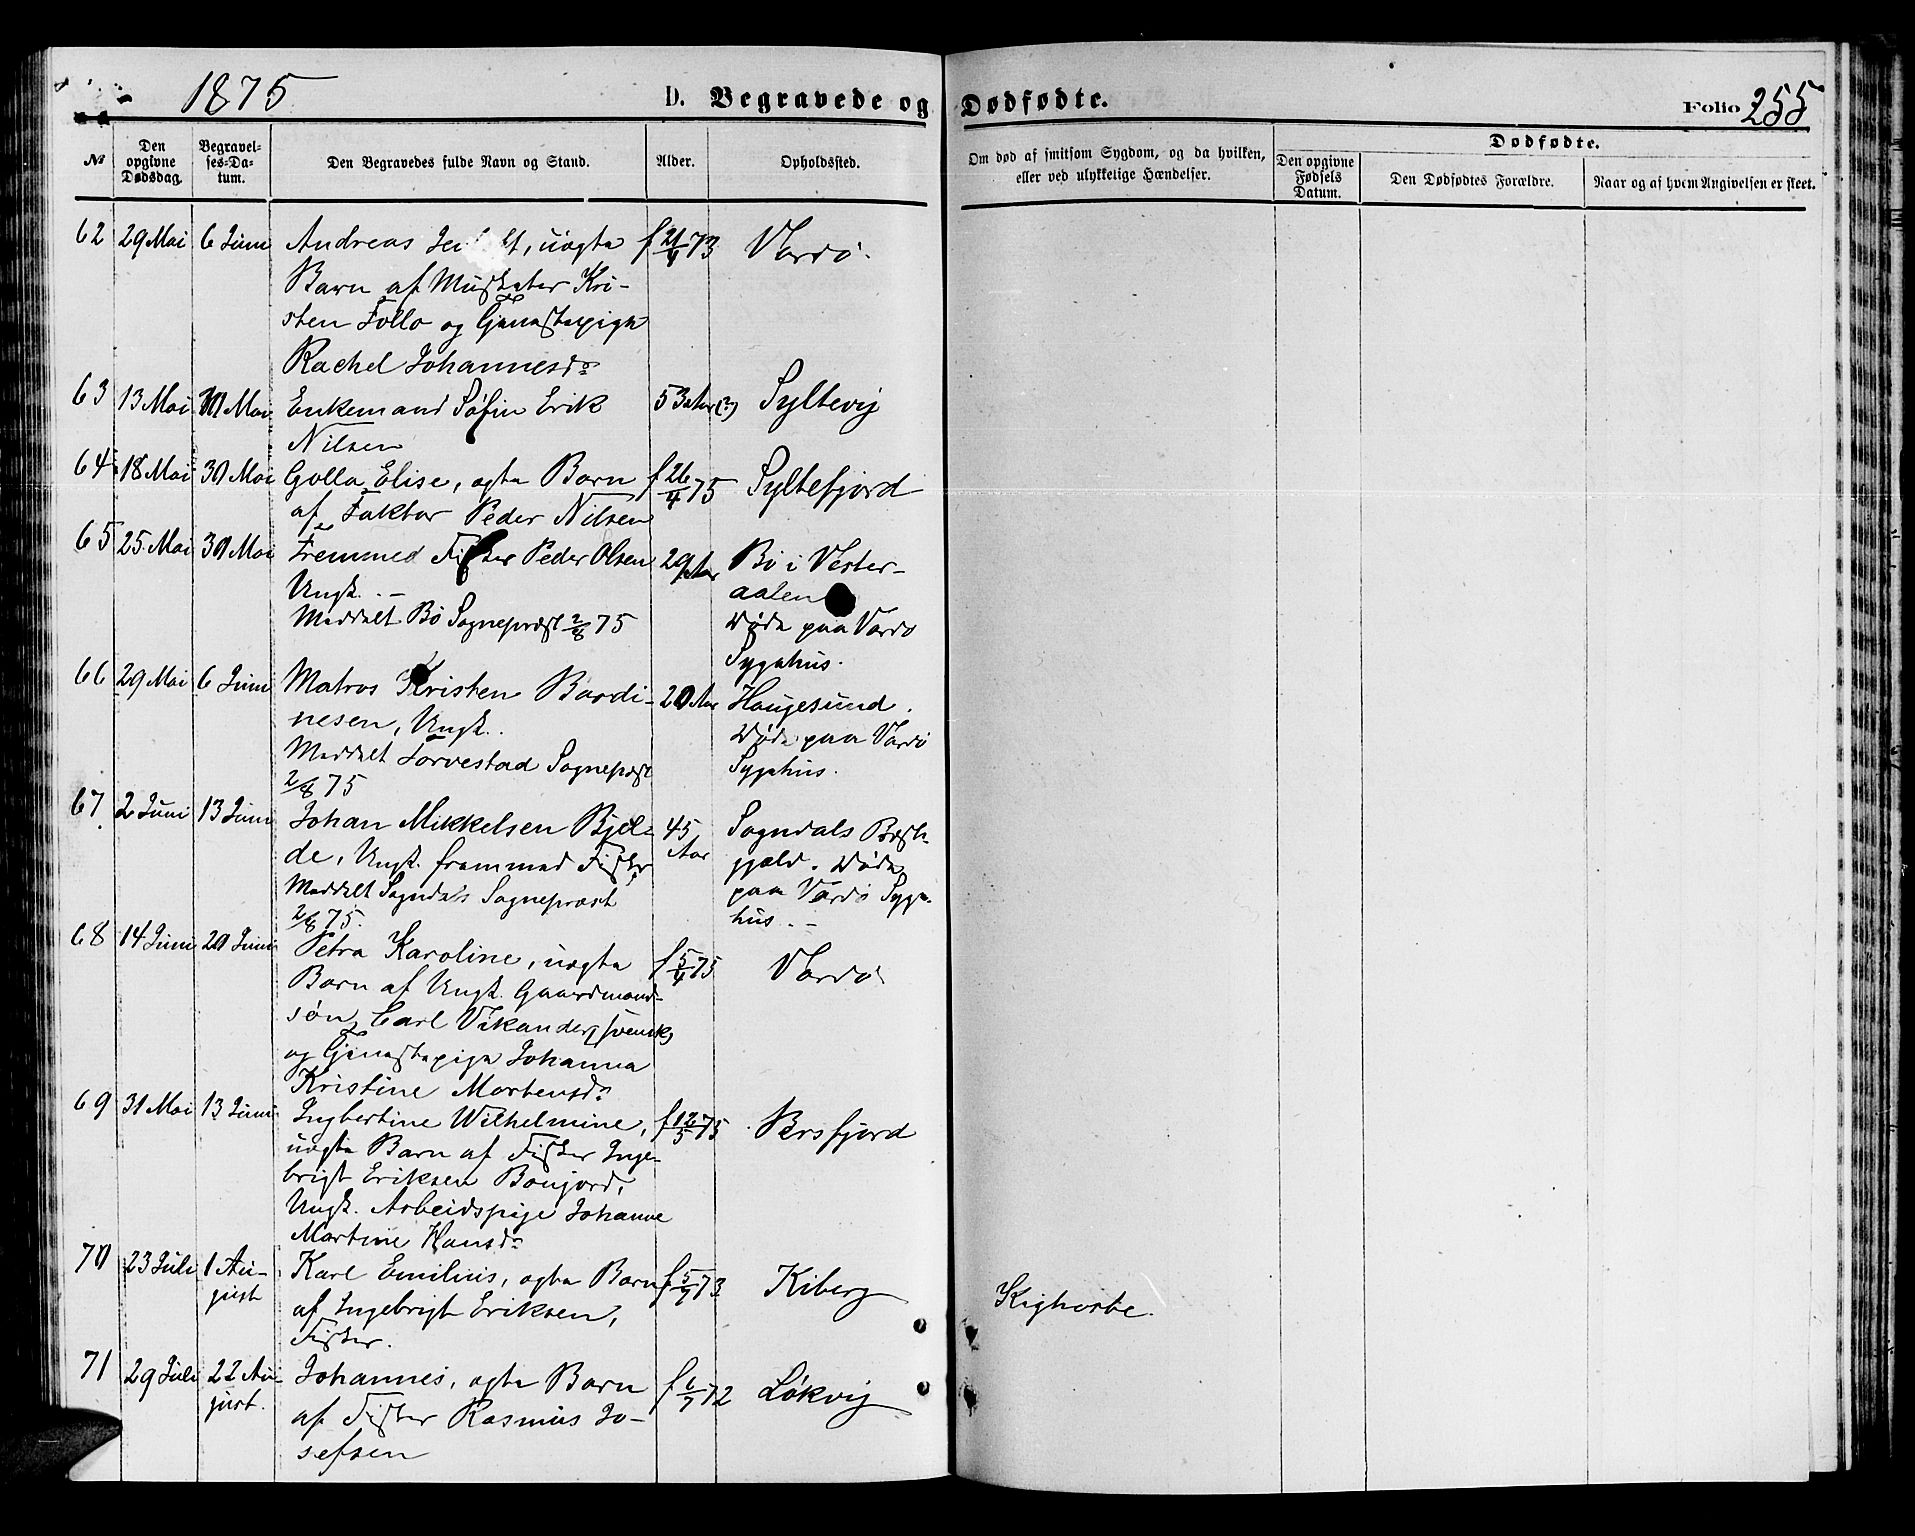 1875 D. Begravede og Dødfødte. Folio 255
№ Den opgivne Dødsdag. Begravel-ses-Da-tum. Den Begravedes fulde Navn og Stand. Alder. Opholdssted. Om død af smitsom Sygdom, og da hvilken, eller ved ulykkelige Hændelser. Dødfødte. Den opgivne Fødsels Datum. Den Dødfødtes Forældre. Naar og af hvem Angivelsen er skeet.
62 29 Mai 6 Juni Andreas uægte f 21/4 73 Vardø.
Barn af Musketer Kri-
sten Follo og Tjenestepige
Rachel Johannesd.
63 13 Mai 30 Mai Enkemand Søfin Erik 53 Aar (?) Syltevig
Nilsen
64 18 Mai 30 Mai Golla Elise, ægte Barn f 26/4 75 Syltefjord
af Faktor Peder Nilsen
65 25 Mai 30 Mai Fremmed Fisker Peder Olsen 29 Aar Bø i Vester-
Ungk. - aalen
Meddelt Bø Sognepræst 2/8 75 Døde paa Vardø
Sygehus.
66 29 Mai 6 Juni Matros Kristen Bardi- 20 Aar Haugesund.
nesen, Ungk. Døde paa Vardø
Meddelt Torvestad Sognepræst Sygehus.
2/8 75
67 2 Juni 13 Juni Johan Mikkelsen Bjel- 45 Aar Sogndals Præste-
de, Ungk. fremmed Fisker gjæld. Døde
Meddelt Sogndals Sognepræst paa Vardø Syge-
2/8 75. hus. -
68 14 Juni 20 Juni Petra Karoline, uægte f 5/4 75 Vardø
Barn af Ungk. Gaardmand-
søn Carl Vikander (svensk)
og Tjenestepige Johanna
Kristine Mortensd.
69 31 Mai 13 Juni Ingbertine Wilhelmine, f 12/5 75 Persfjord
uægte Barn af Fisker Inge-
brigt Eriksen Bonjord,
Ungk. Arbeidspige Johanne
Martine Hansd.
70 23 Juli 1 Au- Karl Emilius, ægte Barn f 5/7 73 Kiberg Kighoste.
gust af Ingebrigt Eriksen,
Fisker.
71 29 Juli 22 Au- Johannes, ægte Barn f 6/7 72 Løkvig
gust. af Fisker Rasmus Jo-
sefsen